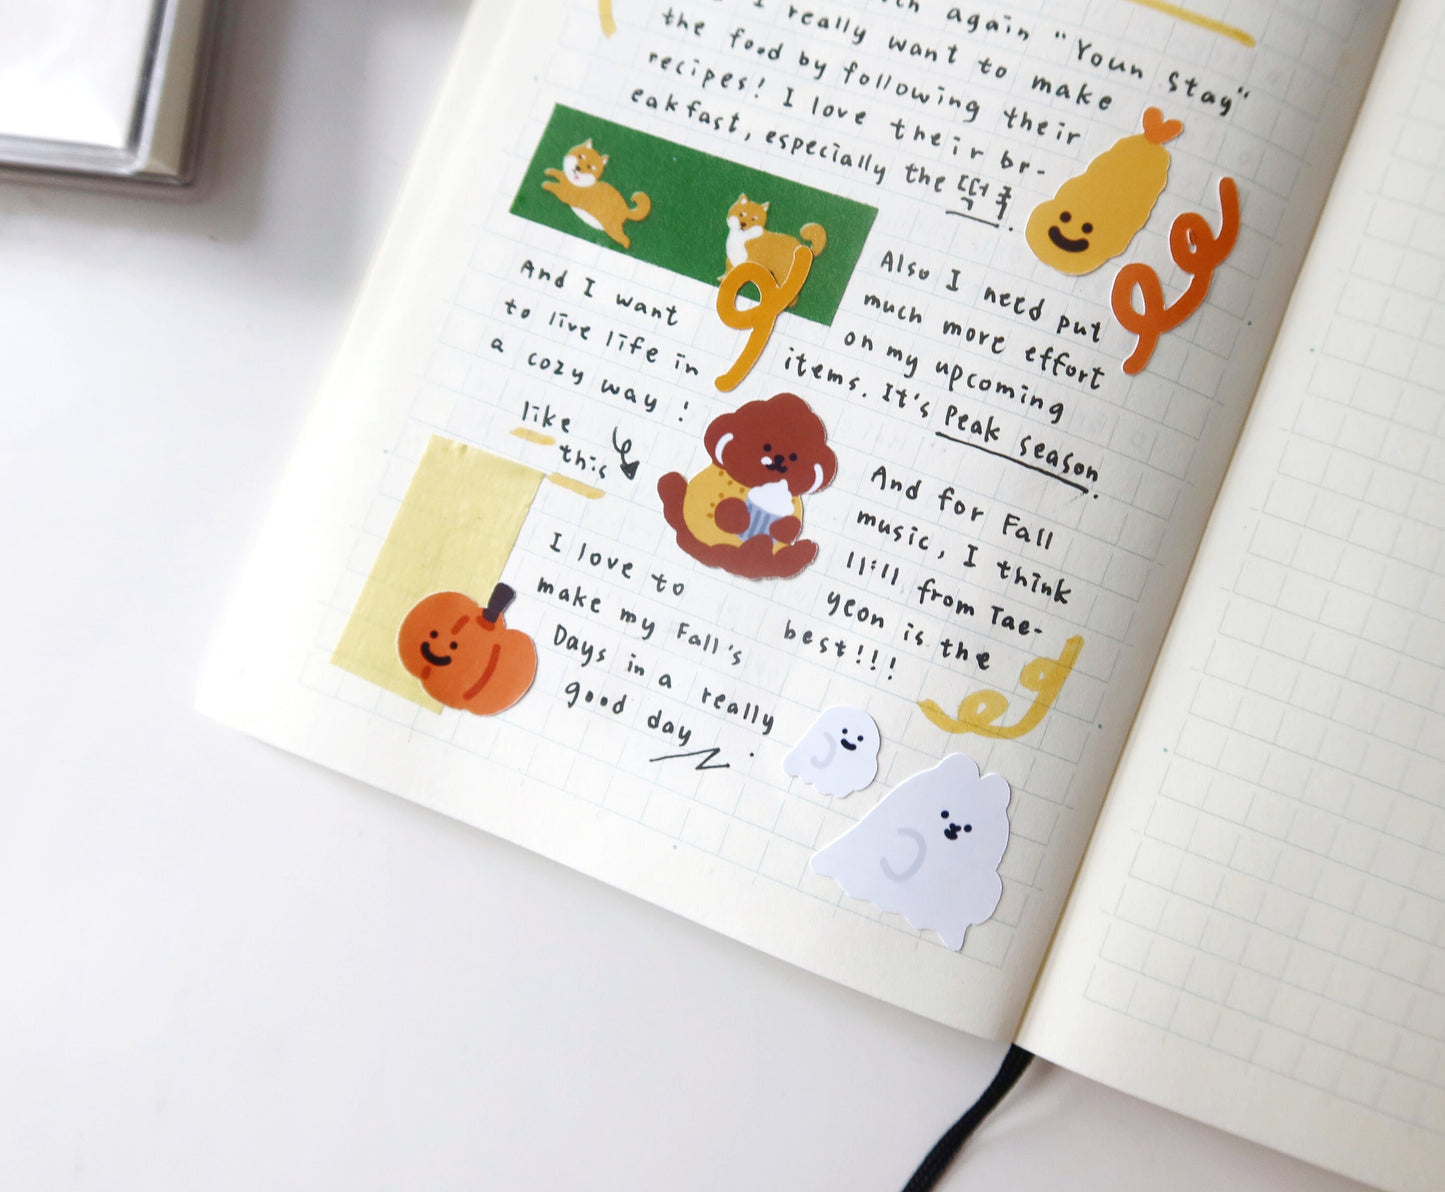 again "Youn Stay"
I really want to make
the food by following their
recipes! I love their br-
eakfast, especially the 떡국.
And I want
to live life in
a cozy way!
like
this
Also I need put
much more effort
on my upcoming
items. It's Peak season.
I love to
make my Fall's
Days in a really
good day.
And for Fall
music, I think
11:11 from Tae-
yeon is the
best!!!